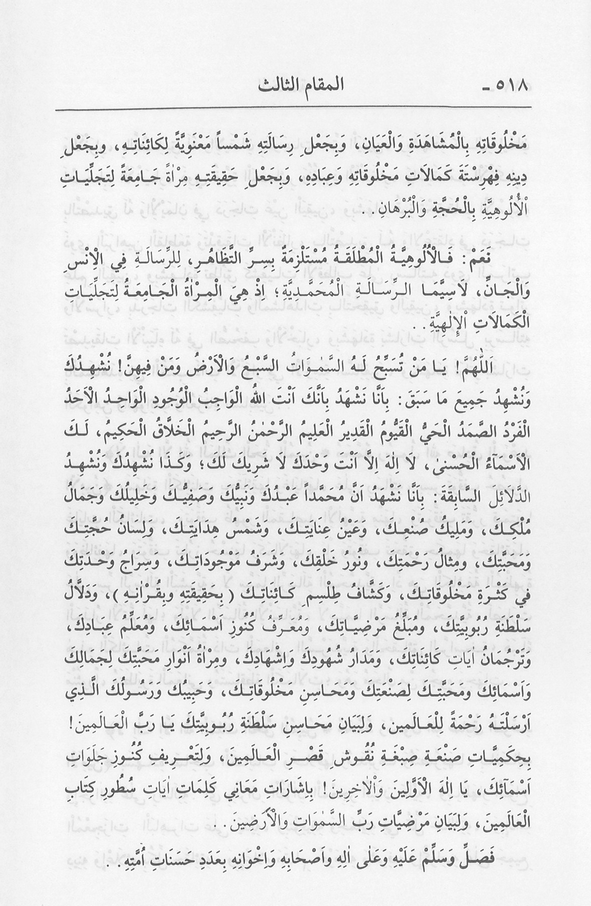 ٥١٨ - المقام الثالث
مَخْلُوقَاتِهِ بِالْمُشَاهَدَةِ وَالْعَيَانِ، وَبِجَعْلِ رِسَالَتِهِ شَمْساً مَعْنَوِيَّةً لِكَائِنَاتِهِ، وَبِجَعْلِ
دِينِهِ فِهْرِسْتَةَ كَمَالَاتِ مَخْلُوقَاتِهِ وَعِبَادِهِ، وَبِجَعْلِ حَقِيقَتِهِ مِرْاٰةً جَامِعَةً لِتَجَلِّيَاتِ
الْاُلُوهِيَّةِ بِالْحُجَّةِ وَالْبُرْهَانِ..
نَعَمْ: فَالْاُلُوهِيَّةُ الْمُطْلَقَةُ مُسْتَلْزِمَةٌ بِسِرِّ التَّظَاهُرِ، لِلرِّسَالَةِ فِي الْاِنْسِ
وَالْجَانِّ، لَاسِيَّمَا الرِّسَالَةِ الْمُحَمَّدِيَّةِ؛ اِذْ هِيَ الْمِرْاٰةُ الْجَامِعَةُ لِتَجَلِّيَاتِ
الْكَمَالَاتِ الْاِلٰهِيَّةِ..
اَللّٰهُمَّ! يَا مَنْ تُسَبِّحُ لَهُ السَّمٰوَاتُ السَّبْعُ وَالْاَرْضُ وَمَنْ فِيهِنَّ! نُشْهِدُكَ
وَنُشْهِدُ جَمِيعَ مَا سَبَقَ: بِاَنَّا نَشْهَدُ بِاَنَّكَ اَنْتَ اللهُ الْوَاجِبُ الْوُجُودِ الْوَاحِدُ الْاَحَدُ
الْفَرْدُ الصَّمَدُ الْحَيُّ الْقَيُّومُ الْقَدِيرُ الْعَلِيمُ الرَّحْمٰنُ الرَّحِيمُ الْخَلَّاقُ الْحَكِيمُ، لَكَ
الْاَسْمَآءُ الْحُسْنٰى، لَا اِلٰهَ اِلَّا اَنْتَ وَحْدَكَ لَا شَرِيكَ لَكَ؛ وَكَذَا نُشْهِدُكَ وَنُشْهِدُ
الدَّلَائِلَ السَّابِقَةَ: بِاَنَّا نَشْهَدُ اَنَّ مُحَمَّداً عَبْدُكَ وَنَبِيُّكَ وَصَفِيُّكَ وَخَلِيلُكَ وَجَمَالُ
مُلْكِكَ، وَمَلِيكُ صُنْعِكَ، وَعَيْنُ عِنَايَتِكَ، وَشَمْسُ هِدَايَتِكَ، وَلِسَانُ حُجَّتِكَ
وَمَحَبَّتِكَ، وَمِثَالُ رَحْمَتِكَ، وَنُورُ خَلْقِكَ، وَشَرَفُ مَوْجُودَاتِكَ، وَسِرَاجُ وَحْدَتِكَ
فِي كَثْرَةِ مَخْلُوقَاتِكَ، وَكَشَّافُ طِلْسِمِ كَائِنَاتِكَ (بِحَقِيقَتِهِ وِبِقُرْاٰنِهِ)، وَدَلَّالُ
سَلْطَنَةِ رُبُوبِيَّتِكَ، وَمُبَلِّغُ مَرْضِيَّاتِكَ، وَمُعَرِّفُ كُنُوزِ اَسْمَائِكَ، وَمُعَلِّمُ عِبَادِكَ،
وَتَرْجُمَانُ اٰيَاتِ كَائِنَاتِكَ، وَمَدَارُ شُهُودِكَ وَاِشْهَادِكَ، وَمِرْاٰةُ اَنْوَارِ مَحَبَّتِكَ لِجَمَالِكَ
وَاَسْمَائِكَ وَمَحَبَّتِكَ لِصَنْعَتِكَ وَمَحَاسِنِ مَخْلُوقَاتِكَ، وَحَبِيبُكَ وَرَسُولُكَ الَّذِي
اَرْسَلْتَهُ رَحْمَةً لِلْعَالَمِينَ، وَلِبَيَانِ مَحَاسِنِ سَلْطَنَةِ رُبُوبِيَّتِكَ يَا رَبَّ الْعَالَمِينَ!
بِحِكَمِيَّاتِ صَنْعَةِ صِبْغَةِ نُقُوشِ قَصْرِ الْعَالَمِينَ، وَلِتَعْرِيفِ كُنُوزِ جَلَوَاتِ
اَسْمَآئِكَ، يَا اِلٰهَ الْاَوَّلِينَ وَالْاٰخِرِينَ! بِاِشَارَاتِ مَعَانِي كَلِمَاتِ اٰيَاتِ سُطُورِ كِتَابِ
الْعَالَمِينَ، وَلِبَيَانِ مَرْضِيَّاتِ رَبِّ السَّمٰوَاتِ وَالْاَرْضِينَ..
فَصَلِّ وَسَلِّمْ عَلَيْهِ وَعَلٰى اٰلِهِ وَاَصْحَابِهِ وَاِخْوَانِهِ بِعَدَدِ حَسَنَاتِ اُمَّتِهِ..